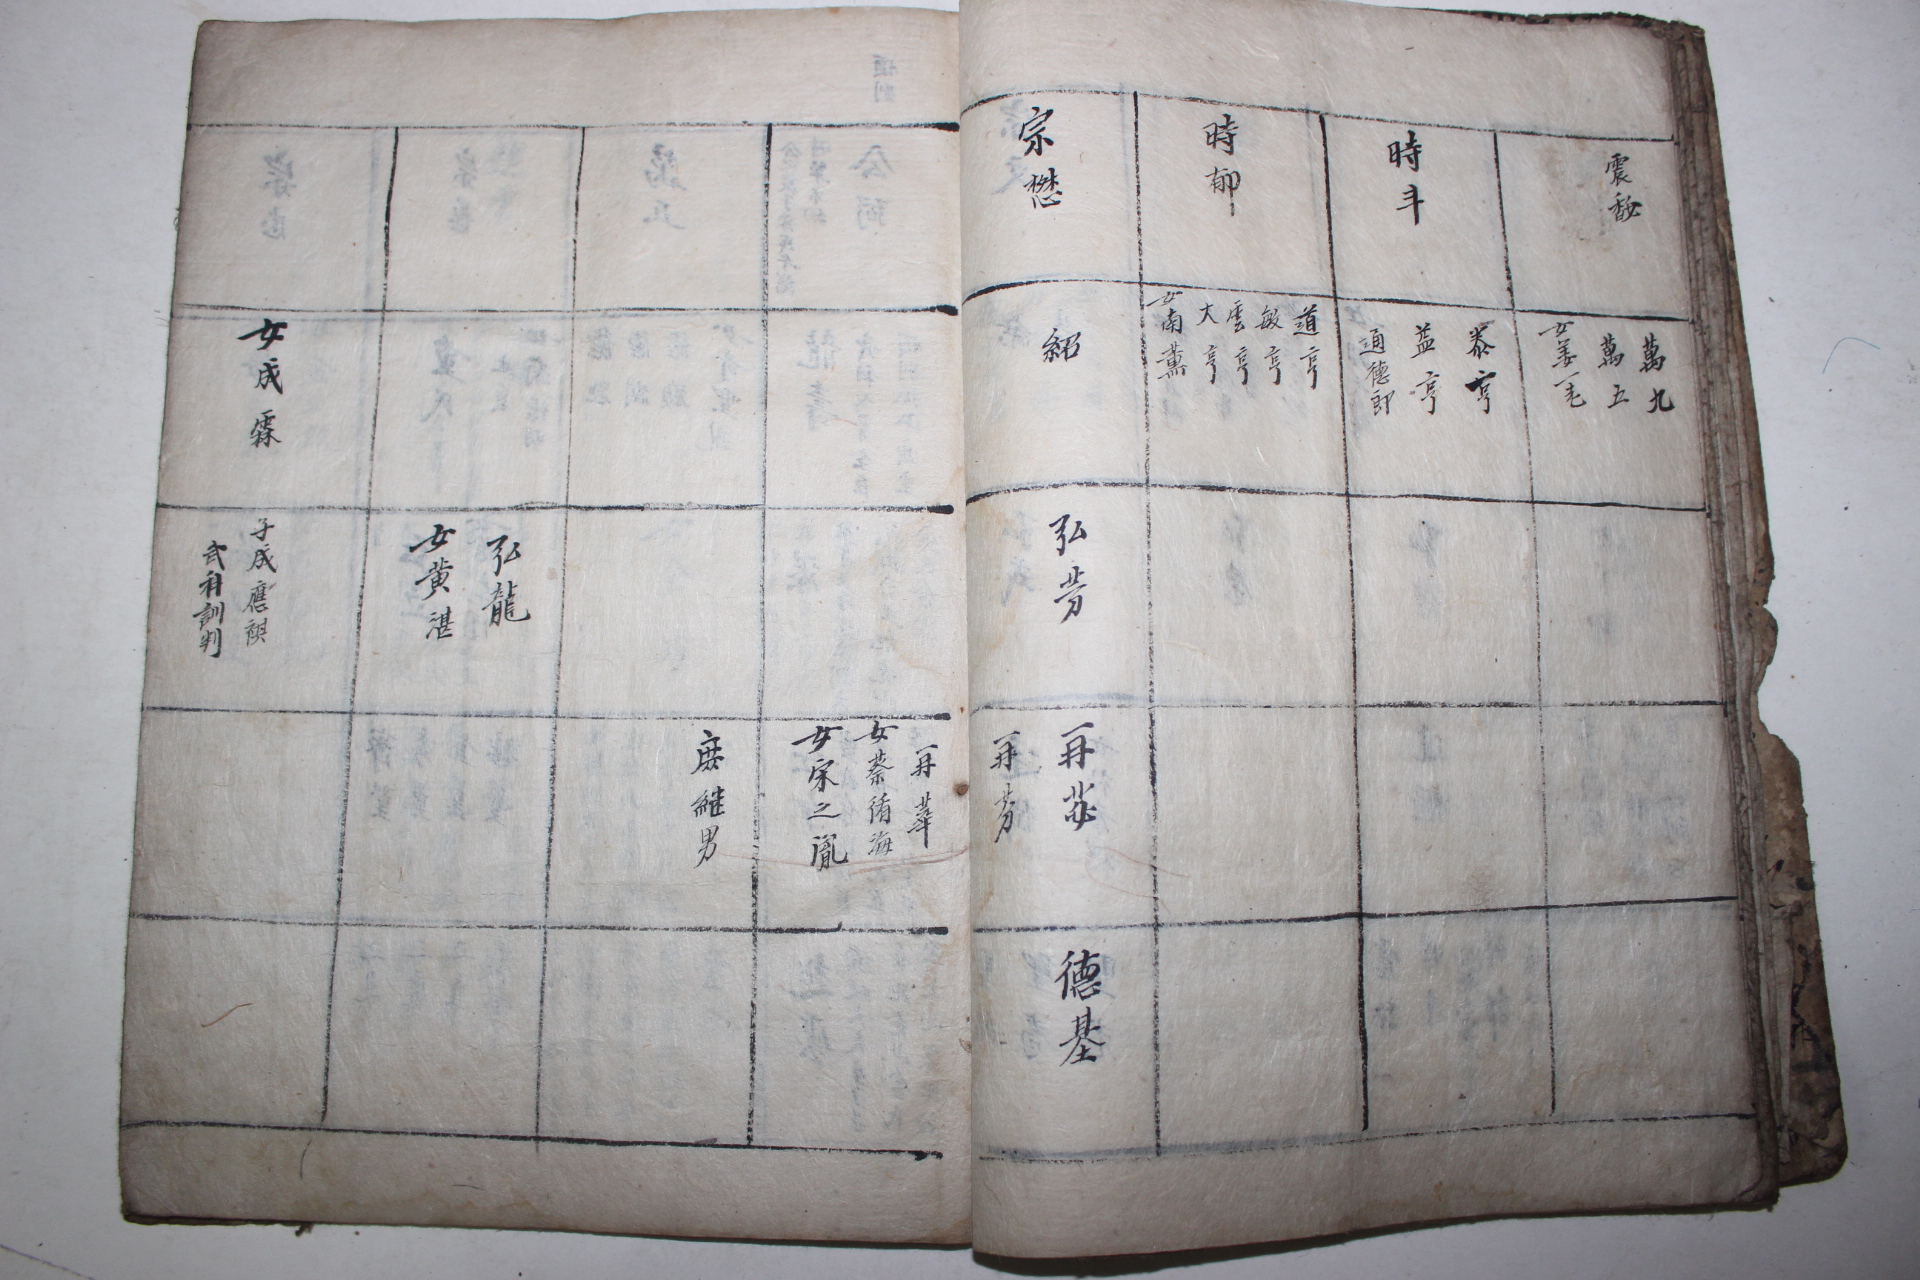 震馝
時斗
時郁
宗懋
萬九
萬五
女姜一毛
泰亨
益亨
通德郎
道亨
敏亨
雲亨
大亨
女南薰
紹
弘芳
再苾
再芬
德基
再華
女蔡脩海
女宋之胤
庶繼男
弘龍
女黃湛
女成霖
子成應祺
武科訓判